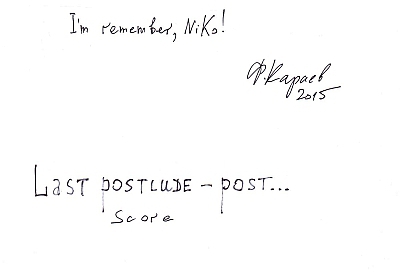 I'm remember, Niko!
Ф. Караев
2015
Last postlude – post...
Score